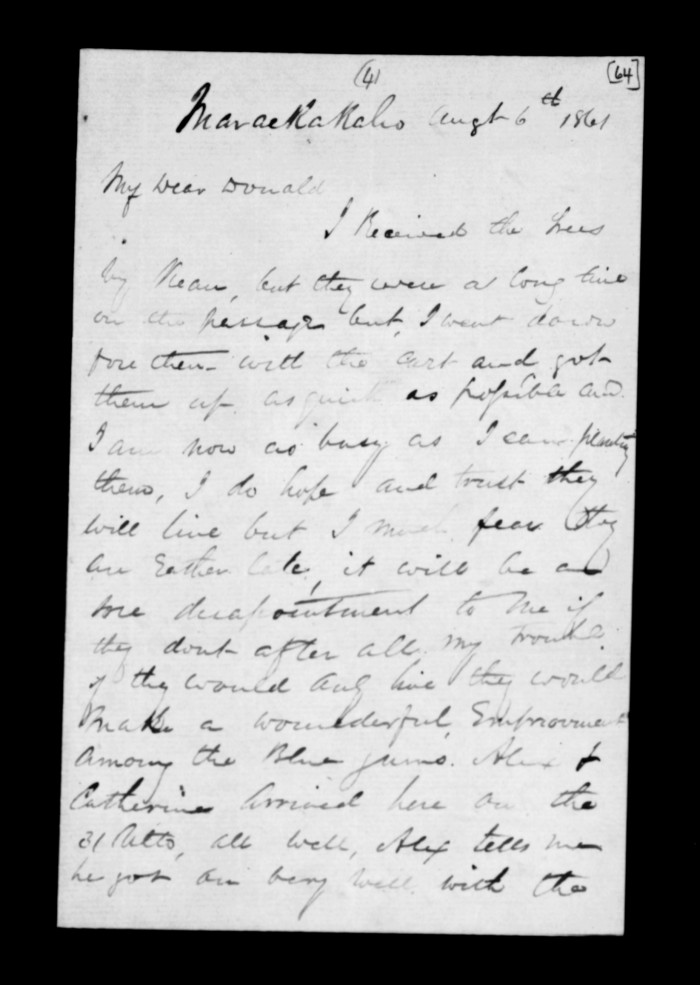 (4)
[64]
Maraekakaho Augt 6th 1861
My Dear Donald
I Received the trees
by Kean, but they were a long time
on the passage but, I went down
fore them with the cart and got
them up as quick as possible and
I am now as busy as I can planting
them, I do hope and trust they
will live but I much fear they
are Eather late, it will be a
sore disapointment to me if
they dont after all my trouble
if they would only live they would
Make a wounederful Emprovment
among the Blue gums. Alex &
Catherine Arrived here on the
31 Ulto, all well, Alex tells me
he got on very well with the